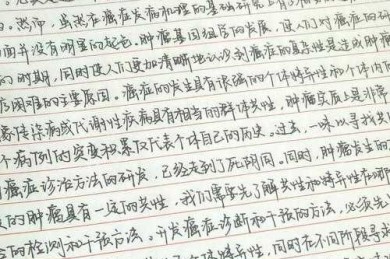 。然而，虽然在癌症发病和理的基础研究上
面并没有明显的起色。肿瘤基因组学的发展，使人们对癌症的
的时期，同时使人们更加清晰地认识到癌症的异质性是造成肿瘤
困难的主要原因。癌症的发生具有很强的个体特异性和个体内
传染病或代谢性疾病具有相当的群体共性，肿瘤实质上是非常
个病例的突变积累仅代表个体自己的历史。过去，一味以寻找
癌症诊治方法的研发，已经走到了死阴囷。同时，肿瘤发生
的肿瘤具有一定的共性，我们需要先了解共性和特异性在哪
的检测和干预方法。开发癌症诊断和干预的方法，必须先
特异性，同时在不同阶段寻